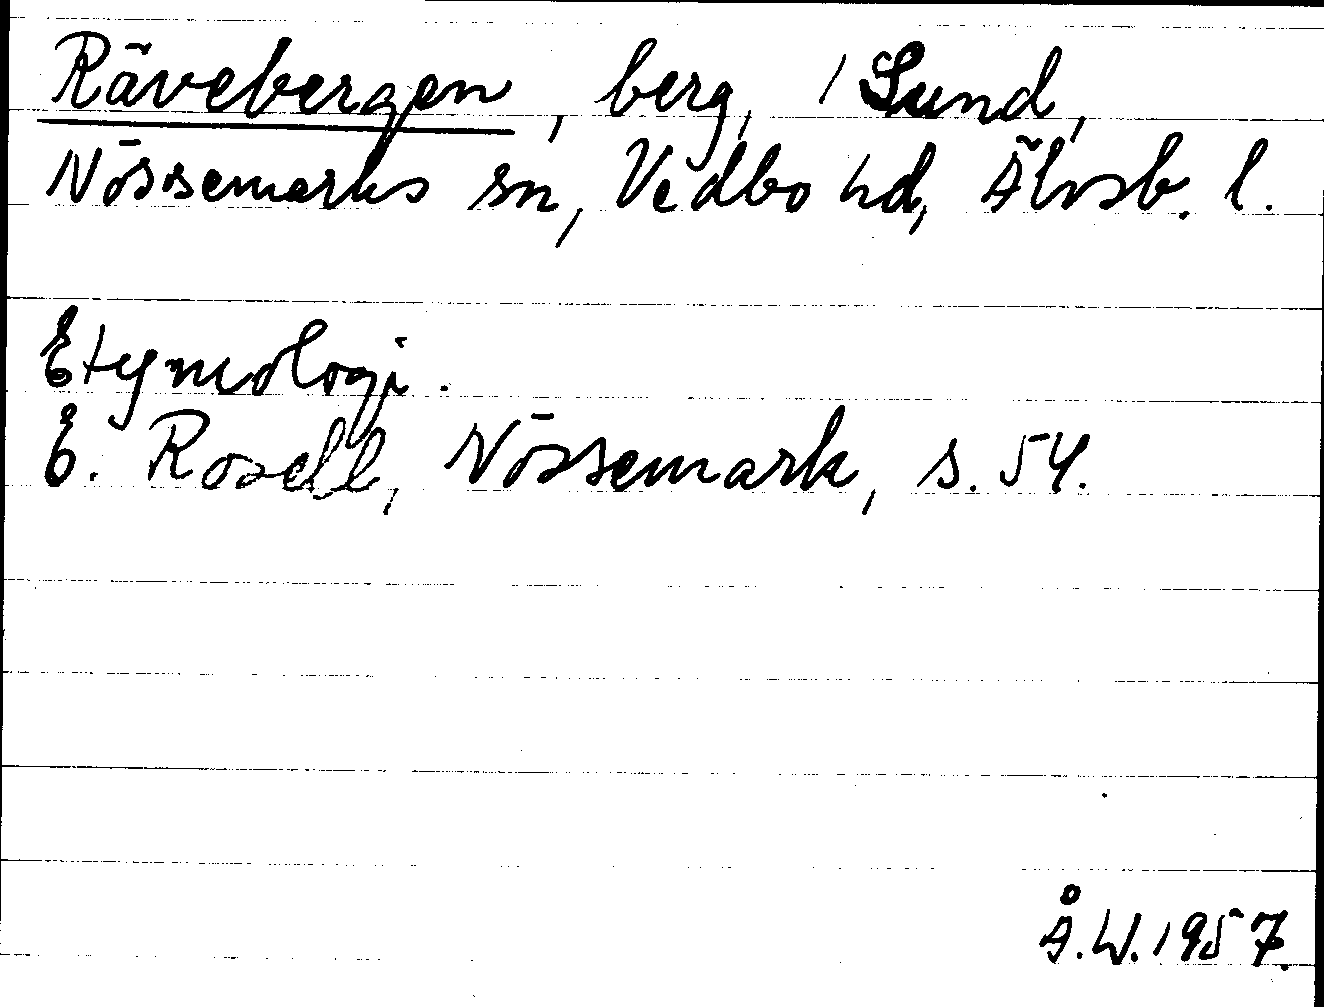 Rävebergen, berg, 1 Lund,
Nössemarks sn, Vedbo hd, Älvsb. l.
Etymologi.
E. Rosell, Nössemark, s. 54.
Å.W. 1957.